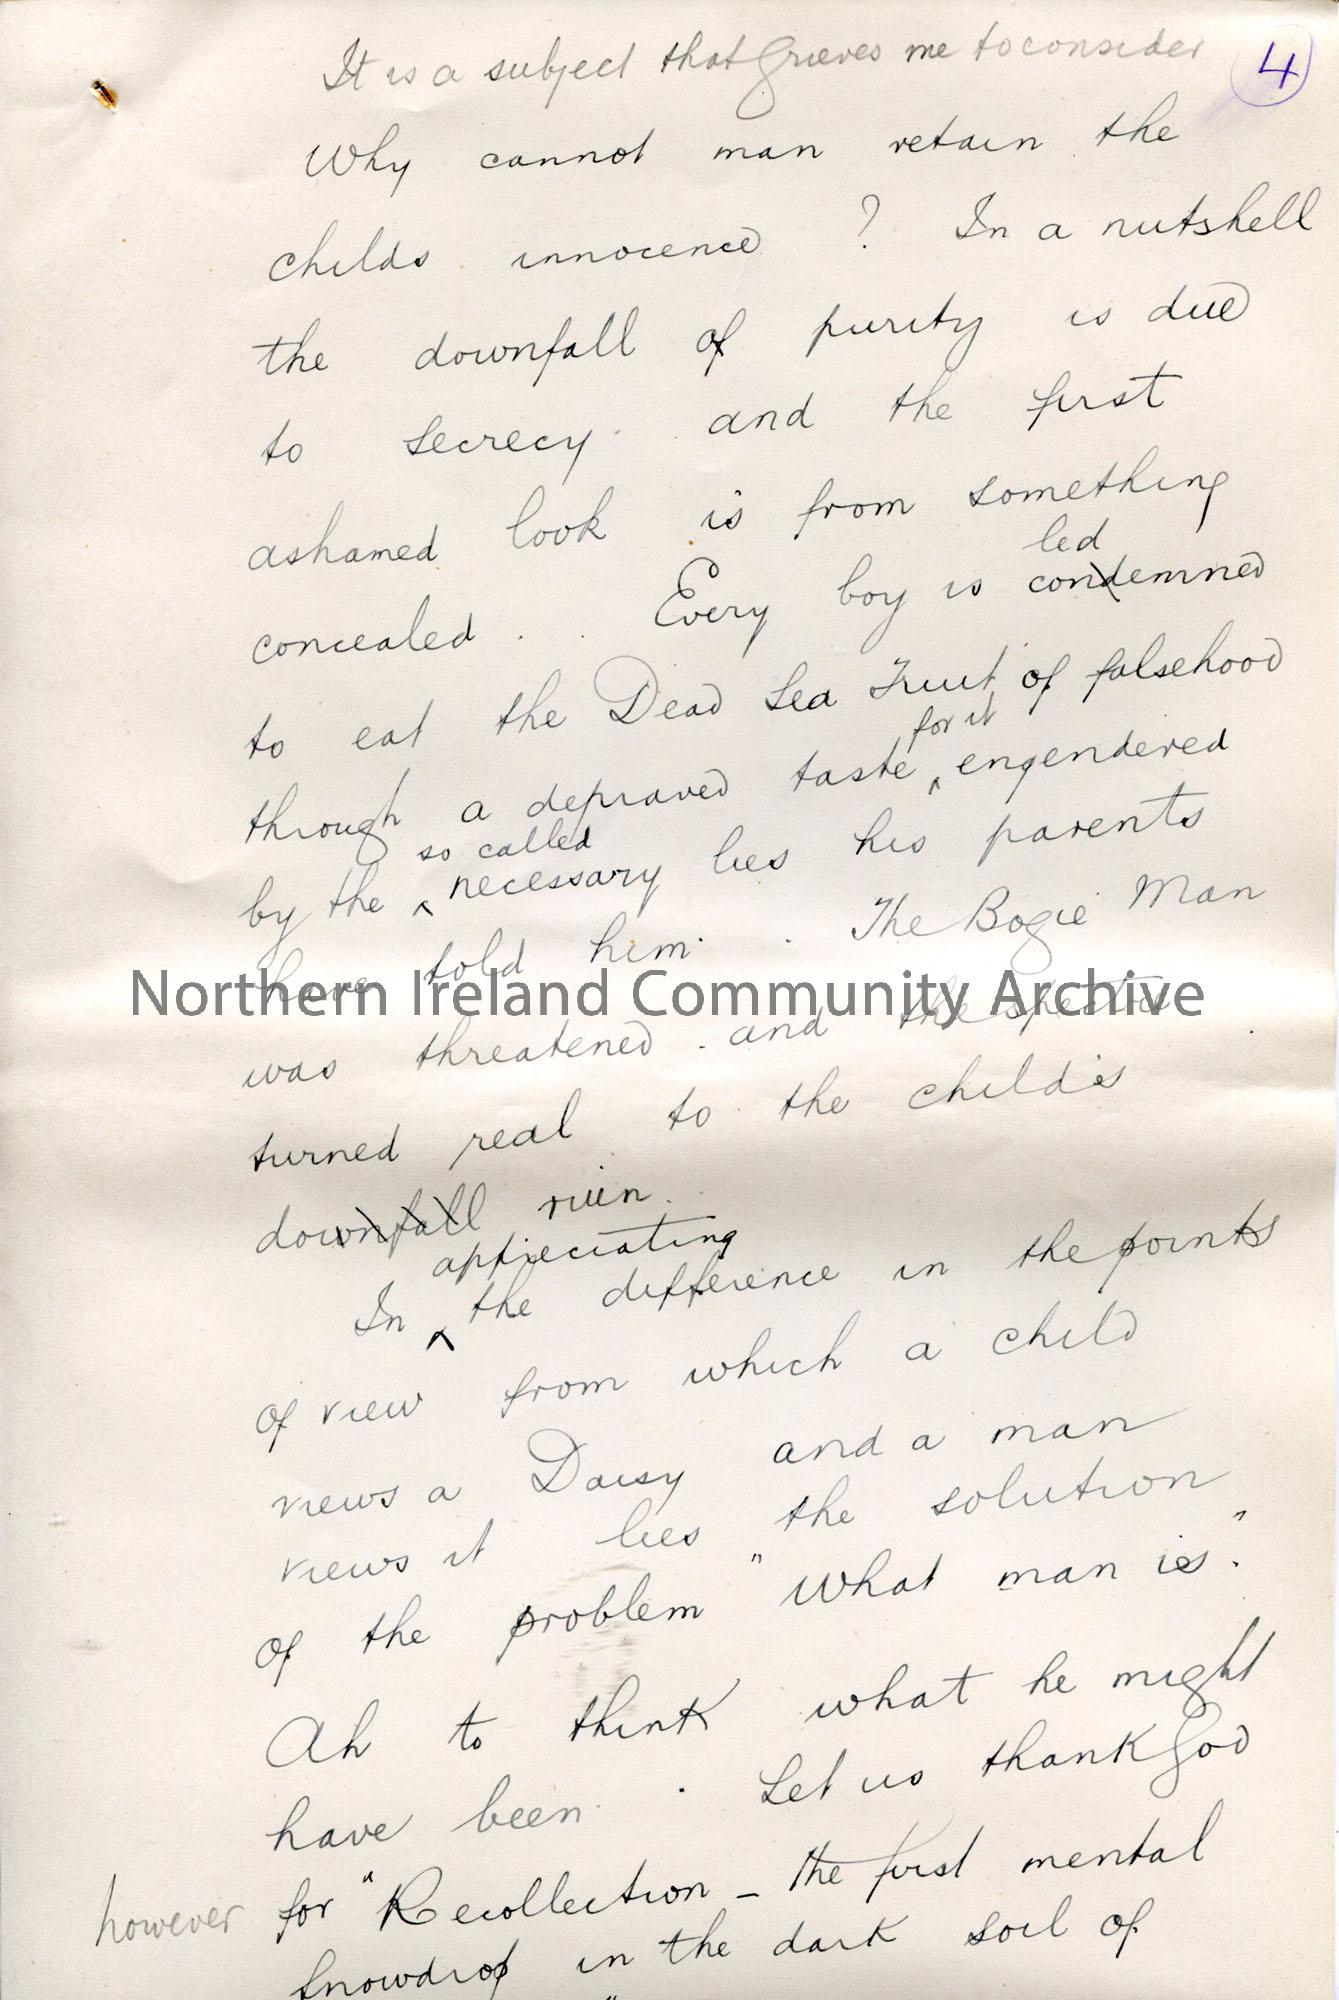 It is a subject that grieves me to consider
4
Why cannot man retain the
childs innocence ? In a nutshell
the downfall of purity is due
to secrecy and the first
ashamed look is from something
led
concealed . Every boy is condemned
to eat the Dead Sea Fruit of falsehood
for it
through a depraved taste ^ engendered
so called
by the ^ necessary lies his parents
have told him . The Bogie Man
Northern Ireland Community Archive
was threatened . and the spectre
turned real to the child's
downfall ruin .
appreciating
In ^ the difference in the points
of view from which a child
views a Daisy and a man
views it lies the solution
of the problem "What man is."
Ah to think what he might
have been . Let us thank God
however for "Recollection – the first mental
snowdrop in the dark soil of